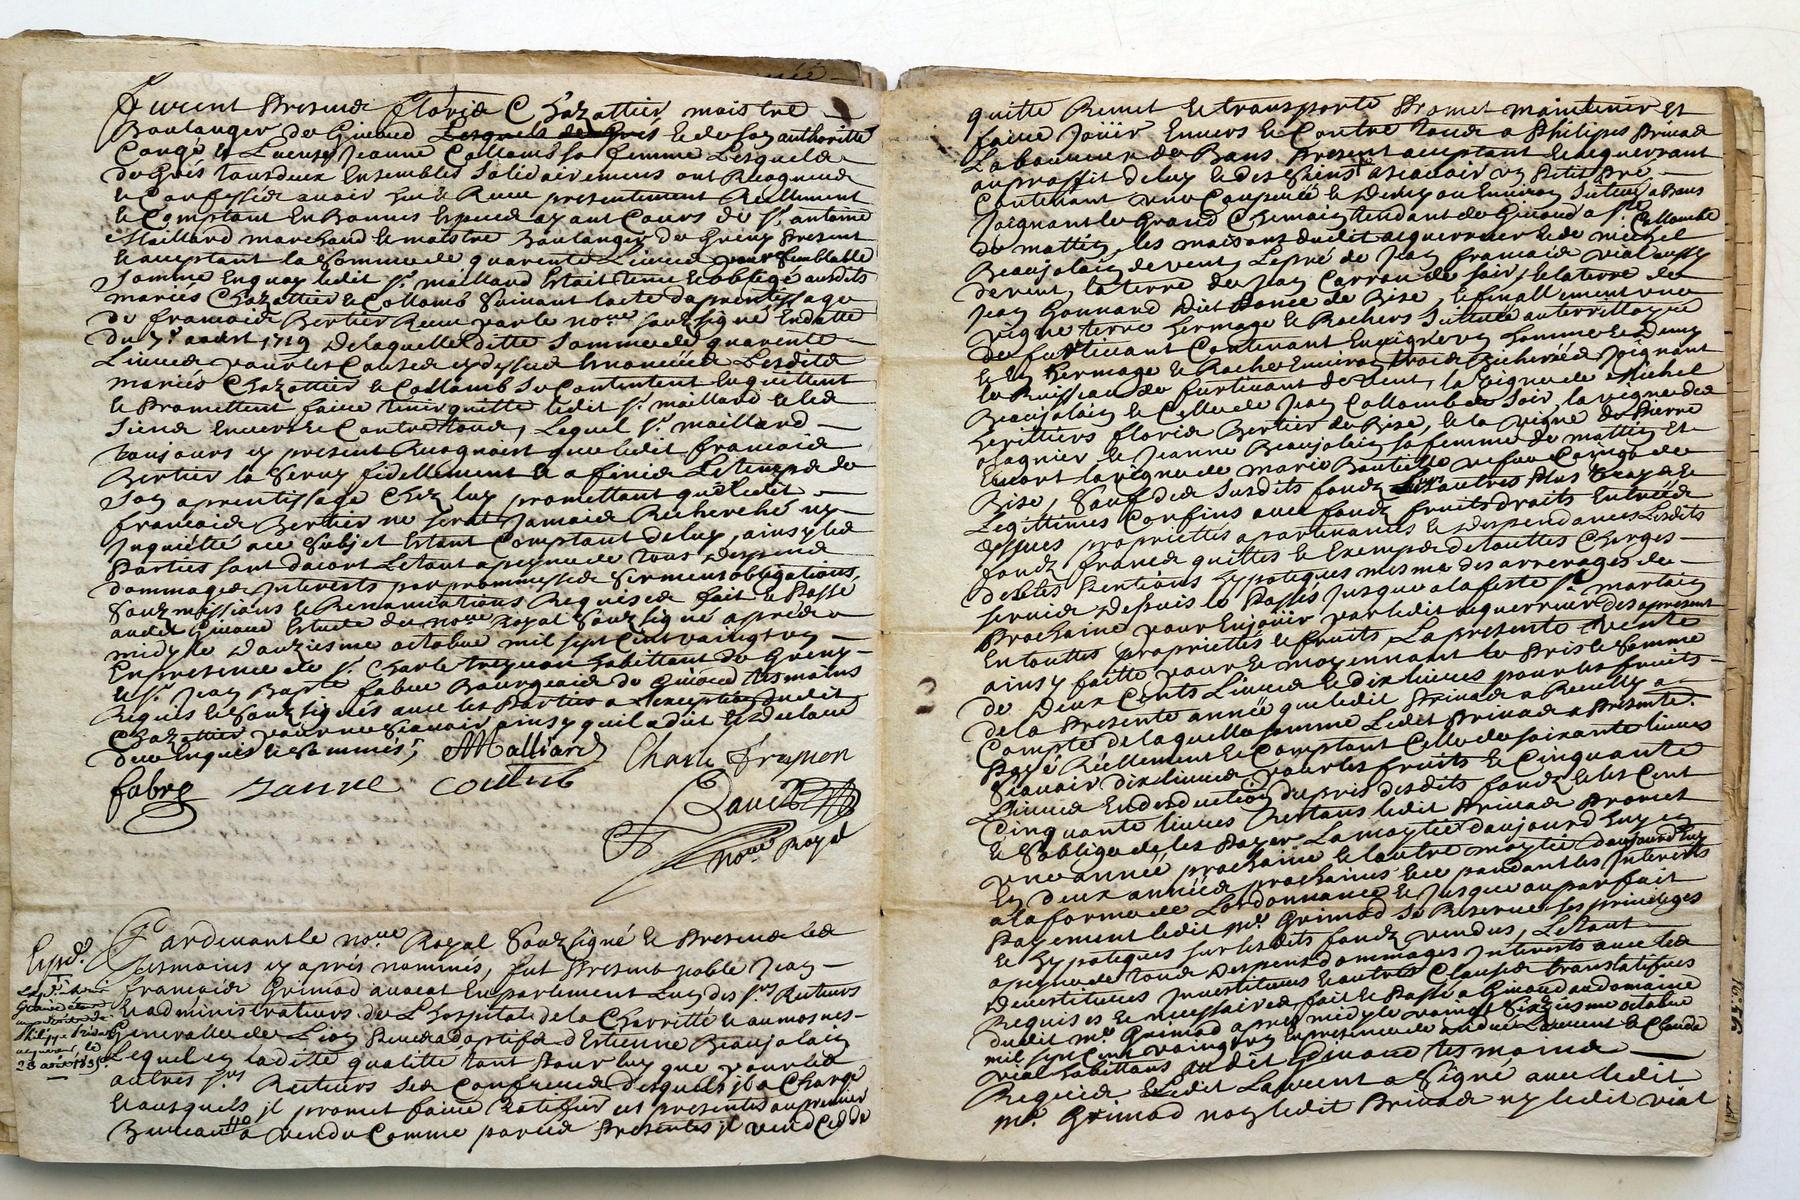 furent Presents florid Chazottier maistre
Boulanger de Givord Lesquels de Gres et de son authoritté
Congé et Lucense Jeanne Collomb sa femme Lesquels
de Grés tous deux Ensembles solidairement ont Recogneu
et Confessée avoir heu et Receu presentement Reellement
et Comptant En Bonnes Especes ayant Cours de Sr. antoine
Maillard marchand et maistre Boulanger de Greny Present
et acceptant la somme de quarente Livres pour semblable
somme En quoy ledit Sr. maillard Estoit tenu et obligé ausdits
mariés Chazottier et Collomb suivant lacte daprentissage
de francois Bertier Receu par le nore. soubsigné En datte
du 7e. aoust 1719 De laquelle ditte somme de quarente
Livres pour les Causes cy dessus Enoncées Lesdits
mariés Chazottier et Collomb se Contentent En quittent
et Promettent faire tenir quitte ledit Sr. maillard et les
siens Envers et Contre tous, Lequel Sr. maillard
toujours cy present Recognoit que ledit francois
Bertier la servy fidellement et a finis Le temps de
son aprentissage Chez luy promettant que ledit
francois Bertier ne serat Jamais Recherché ny
Inquietté a ce subjet Estant Comptant de luy, ainsy les
Parties sont dacort Le tout a peyne de tous Despens
dommages Interests par promesses serment obligations,
soubmissions et Renonciations Requises fait et Passé
audit Givord Estude du nore Royal soubsigné aprés
midy le Douziesme octobre mil sept Cent vaingt un
En presence de Sr. Charle treynon habittant de Greny
et Sr. Jean Bapte. fabre Bourgeois de Givord tesmoins
Requis et soubsignés avec les Parties a lexception dudit
Chazottier pour ne scavoir ainsy quil a dit et declaré
de ce Enquis et sommés,
AMalliard Charle treynon
fabre Janne coulmb
nore Royal
Expd.
Par devant le nore Royal soubsigné et Presents les
tesmoins cy aprés nommés, fut Present noble Jean
francois Grimod avocat En parlement Lun des Srs Recteurs
et administrateurs de L'hospital de la Charritté et aumosnes
Generalle de Lion Peres adoptifs d'Estienne Beaujolain
Lequel en laditte qualitte tant Pour luy que pour les
autres Srs Recteurs ses Conferes desquels jl a Charge
et ausquels jl promet faire Ratiffier ces presentes au premier
Bureau a vendu Comme par ces Presentes jl vend Cedde
23 avril 1835
quitte Remet et transporte Promet maintenir et
faire Joüir Envers et Contre tous a Philipes Privas
Laboureur de Bans present acceptant et acquerrant
au proffit de luy et des siens ascavoir un Petit Pré
Contenant une Couppée et Demy ou Environ situé a Bans
Joignant le Grand Chemain tendant de Givord a Ste. Collombe
de mattin, les maisons dudit acquerreur et de michel
Beaujolain de vent, Le pré de Jean francois vial aussy
de vent, la terre de Jean Carron de soir, et la terre de
Jean Gonnard Dit Donce de Bise, et finallement une
vigne terre hermage et Rochers situés au territtoyre
de furtivant Contenant En vigne un homme et Demy
et En hermage et Roche Environ trois Bicherées Joignant
le Ruisseau de furtivant de vent, la vigne de Michel
Beaujolain et Celle de Jean Collomb de soir, la vigne des
herittiers florid Bertier de Bise, et la vigne de Pierre
et Jeanne Beaujolain sa femme de mattin et
Encort la vigne de marie
Bise, sauf des susdits fonds autres Plus vrays et
Legittimes Confins avec fonds fruits droits Entrées
yssues propriettés apartenances et dependances Lesdits
fonds francs quittes et Exempts de touttes Charges
debtes Pentions hypoteques mesme des arrerages de
servis Depuis le Passés Jusque a la feste St. martin
Prochaine pour En joüir par ledit acquerreur des apresent
En touttes propriettés et fruits, La presente vente
ainsy faitte pour et moyennant le Pris et somme
de Deux Cents Livres et dix livres pour les fruits
de la Presente année que ledit Privas a Recüilly a
Compte de laquelle somme Ledit Privas a Presente.
Payé Reellement et Comptant Celle de soixante livres
scavoir dix livres pour les fruits et Cinquante
Livres En deduction du pris desdits fonds et les Cent
Cinquante livres Restans ledit Privas Promet
et soblige de les Payer La moytié daujourdhuy en
une année prochaine et lautre moytié daujourdhuy
En deux années prochaines et ce pandant les Interests
a la forme de Lordonnance et Jusque au parfait
Payement ledit mr. Grimod se Reserve les privileges
et hypoteques sur lesdits fonds vendus, Le tout
a peyne de tous Despens dommages Interests avec les
Devestitures Investitures et autres Clauses translatifves
Requises et necessaires, fait et Passé a Givord au domaine
dudit mr. Grimod apres midy le vaingt sixiesme octobre
mil sept Cent vaingt un En presence de andré Laurent et Claude
vial habittans dudit Givord tesmoins
Requis et Ledit Laurent a signé avec ledit
mr. Grimod non ledit Privas ny ledit vial